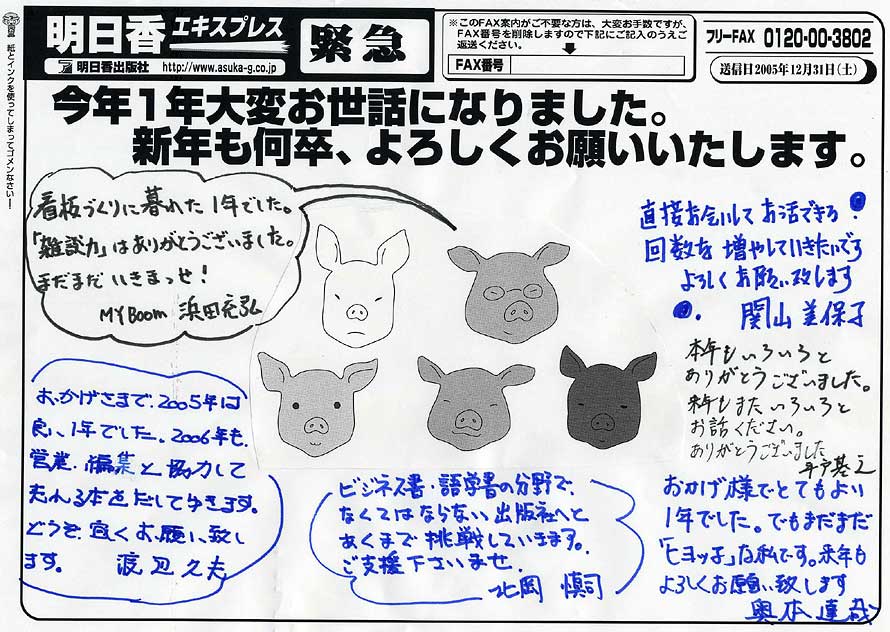 明日香エキスプレス
明日香出版社 http://www.asuka-g.co.jp
緊急
※このFAX案内がご不要な方は、大変お手数ですが、
FAX番号を削除しますので下記にご記入のうえご
返送ください。
FAX番号
フリーFAX 0120-00-3802
送信日2005年12月31日(土)
紙とインクを使ってしまってゴメンなさい!
今年1年大変お世話になりました。
新年も何卒、よろしくお願いいたします。
看板づくりに暮れた1年でした。
「雑談力」はありがとうございました。
まだまだいきまっせ!
MY Boom 浜田充弘
直接お会いしてお話できる
回数を増やしていきたいです
よろしくお願い致します
関山美保子
本年もいろいろと
ありがとうございました。
来年もまたいろいろと
お話ください。
ありがとうございました
平戸基之
おかげさまで、2005年は
良い1年でした。2006年も、
営業、編集と協力して
売れる本をだしてゆきます。
どうぞ、宜しくお願い致し
ます。 渡辺久夫
ビジネス書・語学書の分野で、
なくてはならない出版社へと
あくまで挑戦していきます。
ご支援下さいませ。
北岡慎司
おかげ様でとてもよい
1年でした。でもまだまだ
「ヒヨッ子」な私です。来年も
よろしくお願い致します
奥本達哉